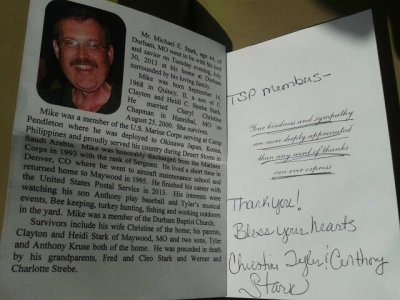 Mr. Michael E. Stark, age 44, of
Durham, MO went to be with his lord
and savior on Tuesday evening, July
30, 2013 at his home at Durham
surrounded by his loving family.
Mike was born September 16,
1968 in Quincy, IL a son of C.
Clayton and Heidi C. Strebe Stark.
He married Cheryl Christine
Chapman in Hannibal, MO on
August 25, 2000. She survives.
Mike was a member of the U.S. Marine Corps serving at Camp
Pendleton where he was deployed to Okinawa Japan, Korea,
Philippines and proudly served his country during Desert Storm in
Saudi Arabia. Mike was honorably discharged from the Marine
Corps in 1993 with the rank of Sergeant. He lived a short time in
Denver, CO where he went to aircraft maintenance school and
returned home to Maywood in 1995. He finished his career with
the United States Postal Service in 2013. His interests were
watching his son Anthony play baseball and Tyler's musical
events, Bee keeping, turkey hunting, fishing and working outdoors
in the yard. Mike was a member of the Durham Baptist Church.
Survivors include his wife Christine of the home; his parents,
Clayton and Heidi Stark of Maywood, MO and two sons, Tyler
and Anthony Kruse both of the home. He was preceded in death
by his grandparents, Fred and Cleo Stark and Werner and
Charlotte Strebe.
TSP members-
Your kindness and sympathy
are more deeply appreciated
than any word of thanks
can ever express
Thank you!
Bless your hearts
Christine Tyler & Anthony
Stark